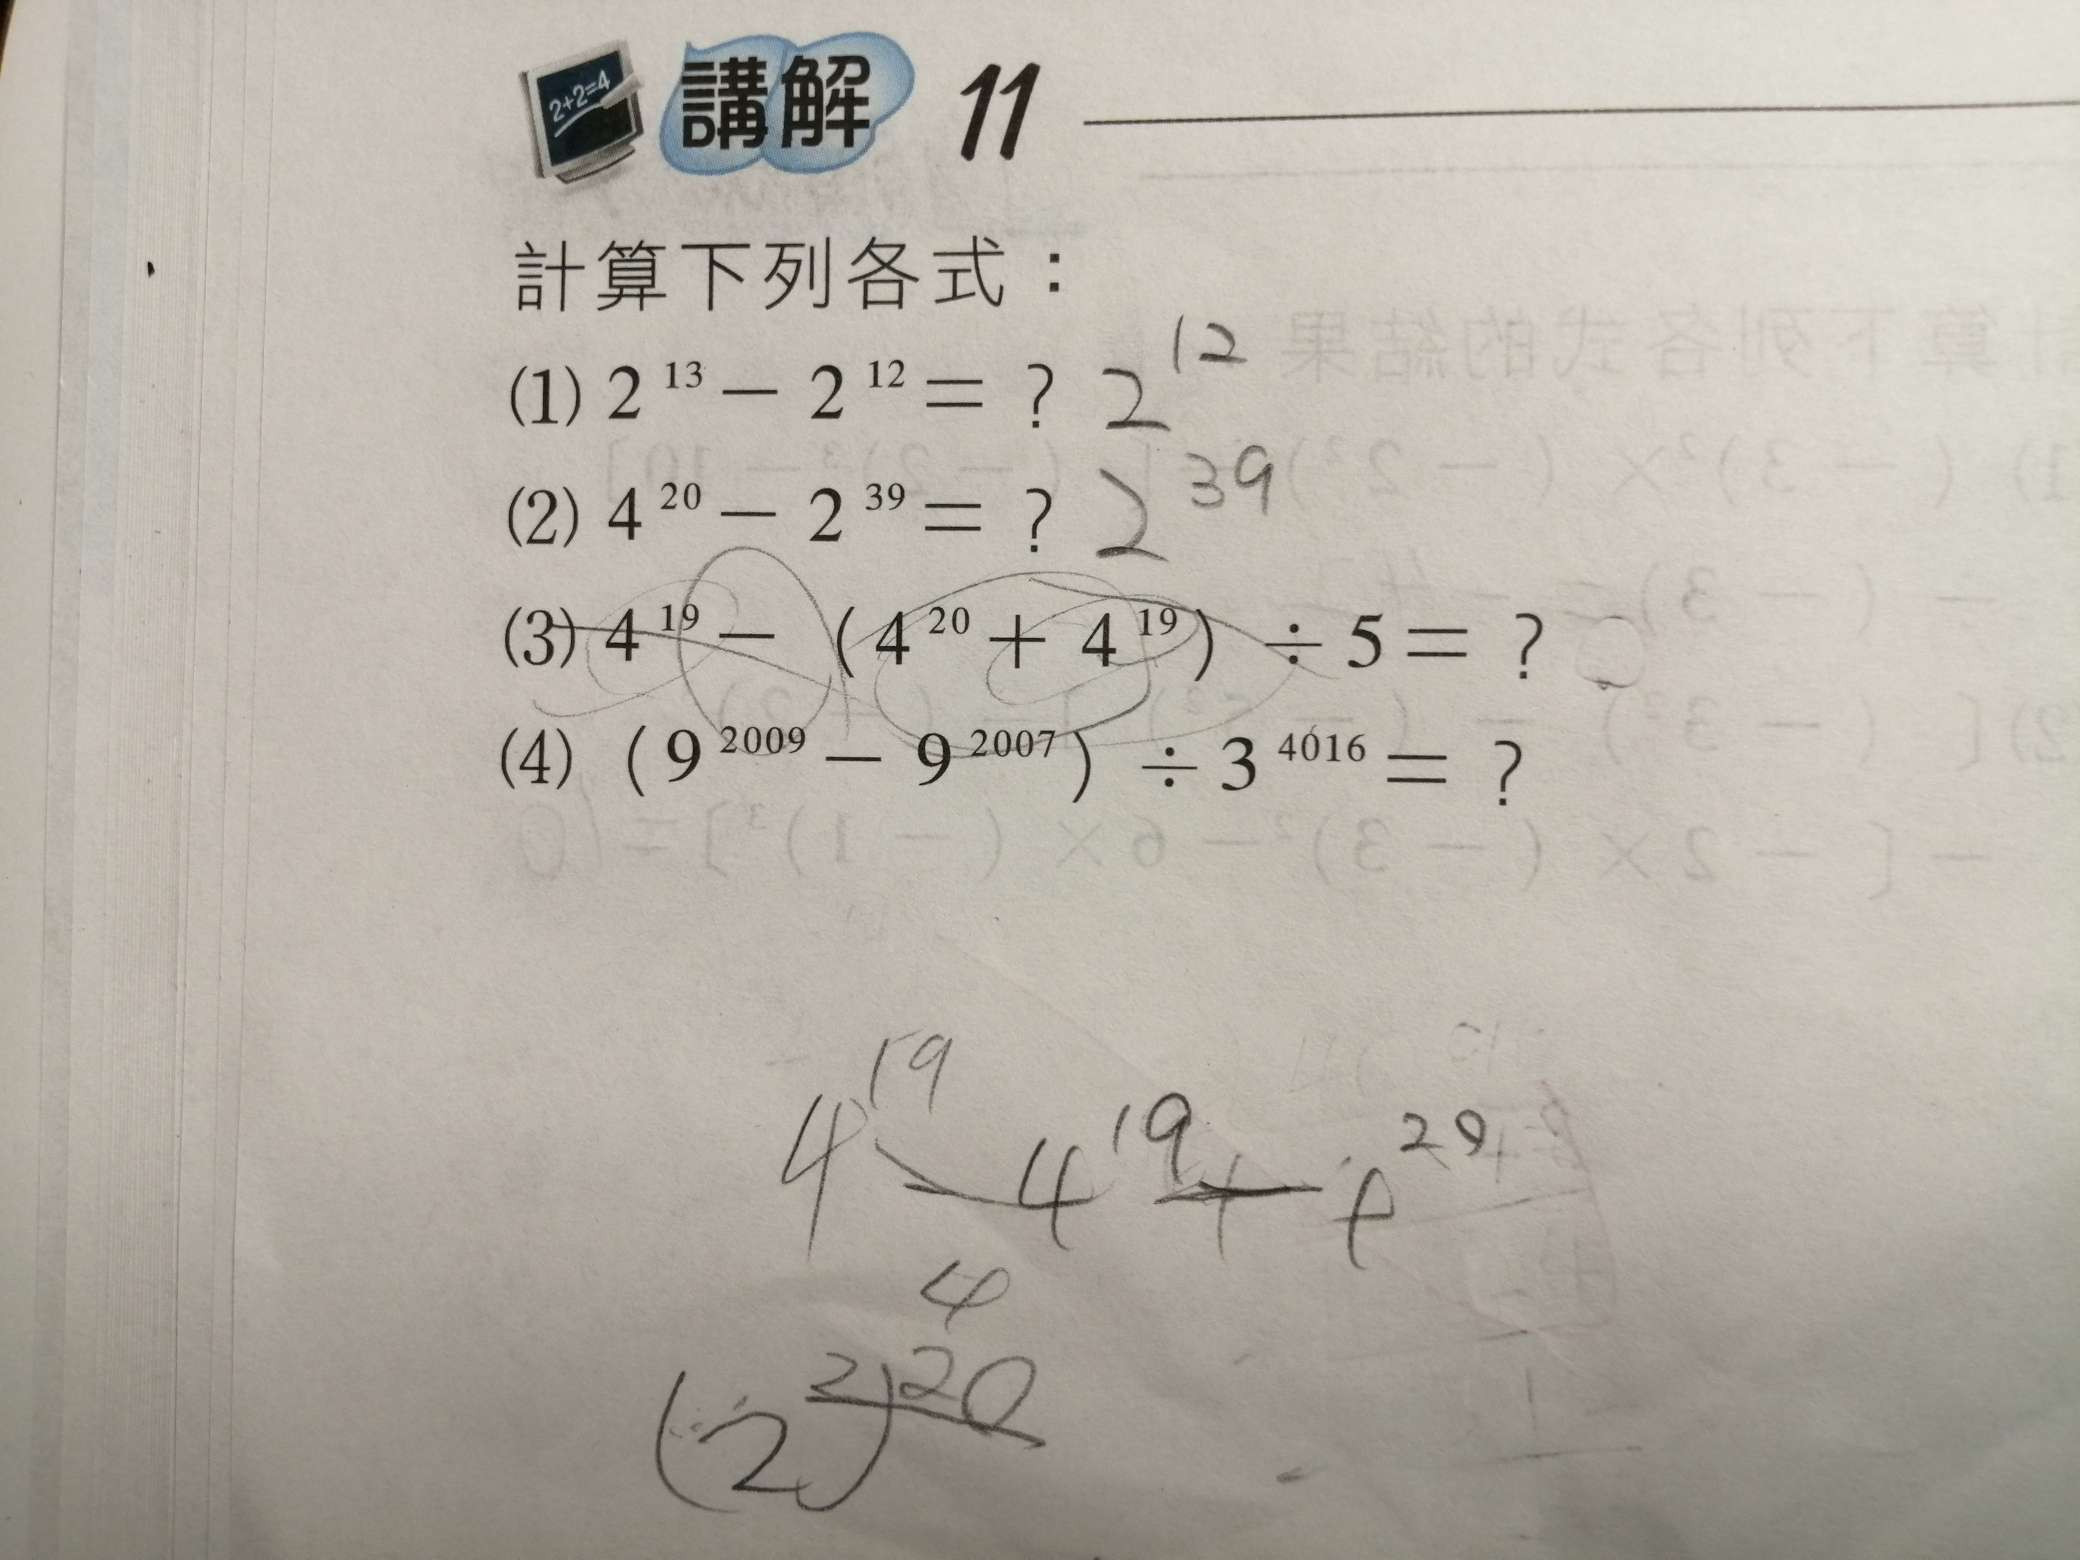 2+2=4
講解 11
計算下列各式：
(1) 2¹³ − 2¹² = ? 2¹²
(2) 4²⁰ − 2³⁹ = ? 2³⁹
(3) 4¹⁹ − (4²⁰ + 4¹⁹) ÷ 5 = ?
(4) (9²⁰⁰⁹ − 9²⁰⁰⁷) ÷ 3⁴⁰¹⁶ = ?
4¹⁹ − 4¹⁹
4
(2²)²⁰